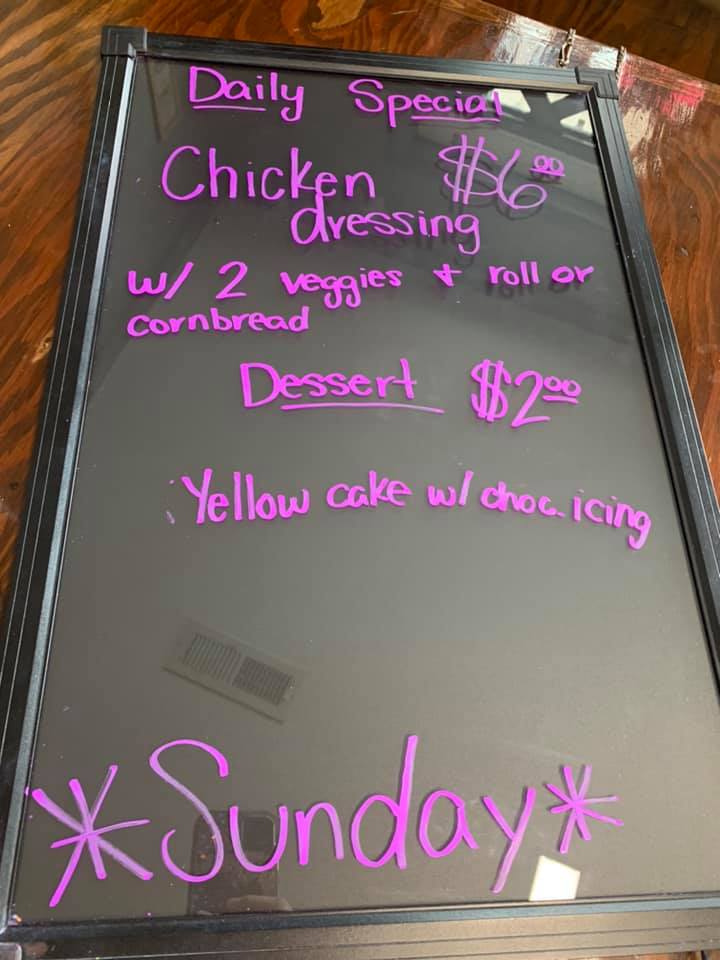 Daily Special
Chicken $6.00
dressing
w/ 2 veggies + roll or
cornbread
Dessert $2.00
Yellow cake w/ choc. icing
*Sunday*